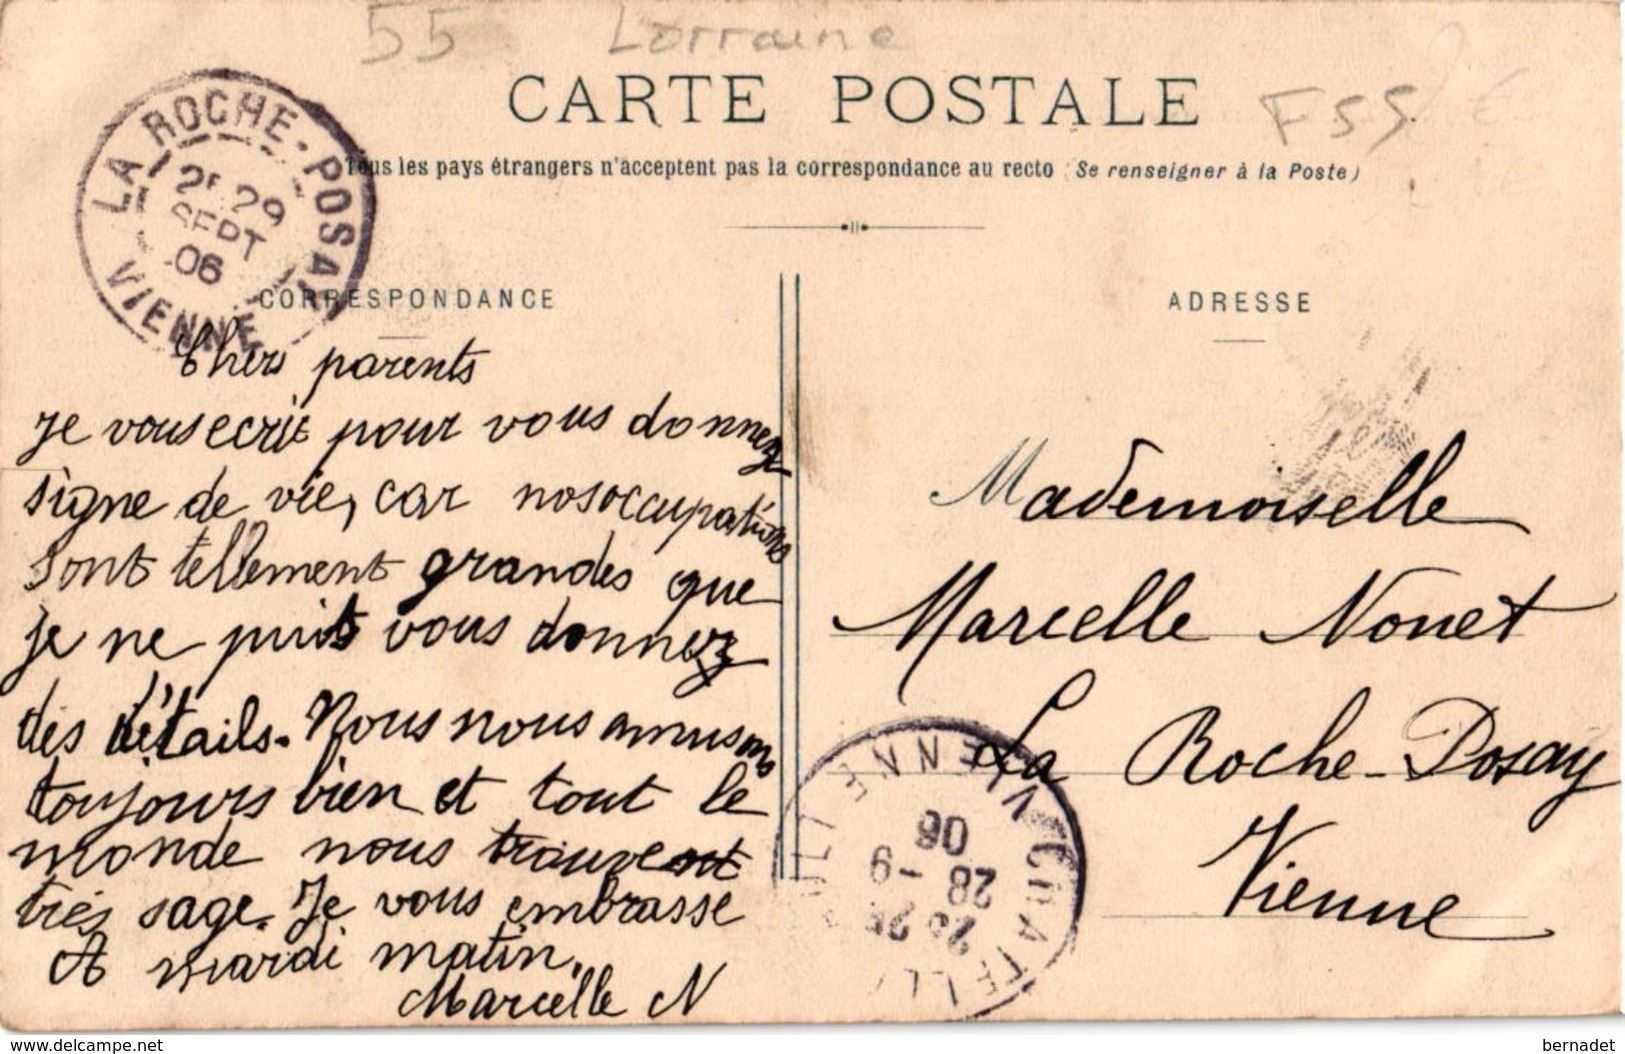 55 Lorraine
CARTE POSTALE
F55
Tous les pays étrangers n'acceptent pas la correspondance au recto (Se renseigner à la Poste)
LA ROCHE-POSAY
29
SEPT
06
VIENNE
CORRESPONDANCE
Chers parents
Je vous ecrit pour vous donnez
signe de vie, car nos occupations
sont tellement grandes que
je ne puis vous donnez
des détails. Nous nous amusons
toujours bien et tout le
monde nous trouvent
très sage. Je vous embrasse
A mardi matin.
Marcelle N
ADRESSE
Mademoiselle
Marcelle Nouet
La Roche-Posay
Vienne
VIENNE
28 -9
06
delcampe.net
bernadet